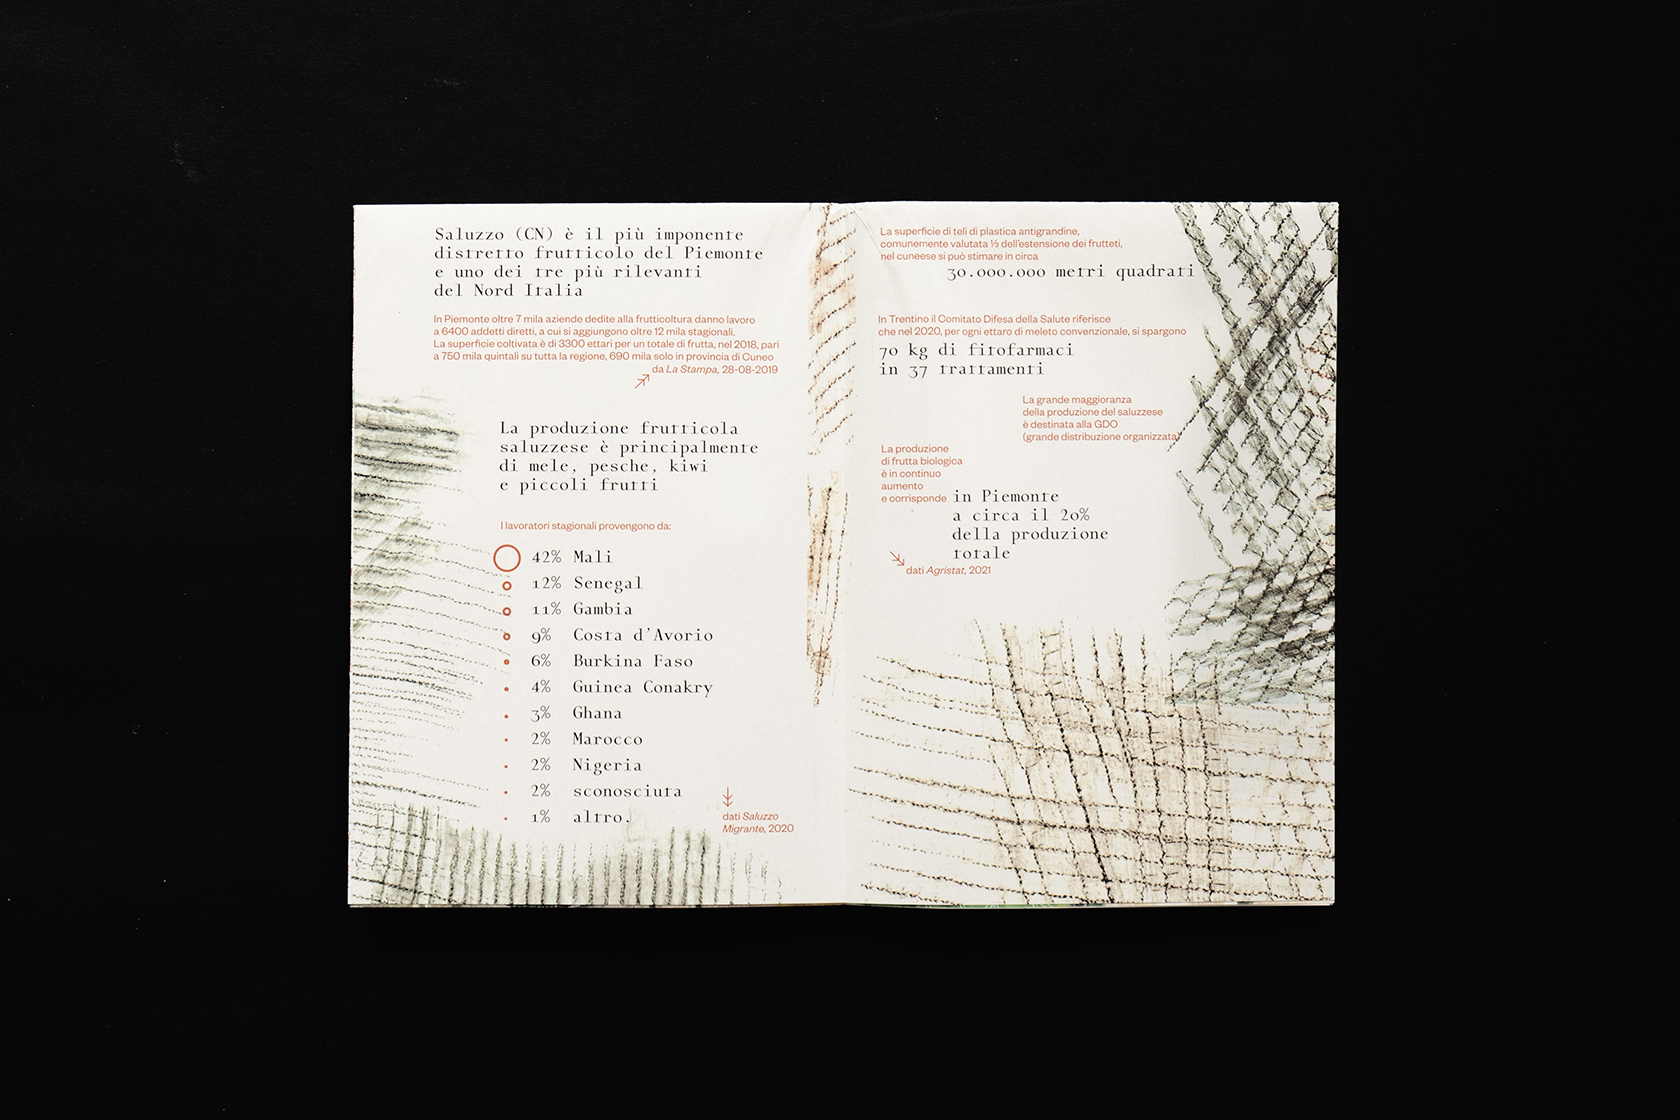 Saluzzo (CN) è il più imponente
distretto frutticolo del Piemonte
e uno dei tre più rilevanti
del Nord Italia
In Piemonte oltre 7 mila aziende dedite alla frutticoltura danno lavoro
a 6400 addetti diretti, a cui si aggiungono oltre 12 mila stagionali.
La superficie coltivata è di 3300 ettari per un totale di frutta, nel 2018, pari
a 750 mila quintali su tutta la regione, 690 mila solo in provincia di Cuneo
da La Stampa, 28-08-2019
La produzione frutticola
saluzzese è principalmente
di mele, pesche, kiwi
e piccoli frutti
I lavoratori stagionali provengono da:
42% Mali
12% Senegal
11% Gambia
9% Costa d'Avorio
6% Burkina Faso
4% Guinea Conakry
3% Ghana
2% Marocco
2% Nigeria
2% sconosciuta
1% altro.
dati Saluzzo
Migrante, 2020
La superficie di teli di plastica antigrandine,
comunemente valutata ⅓ dell'estensione dei frutteti,
nel cuneese si può stimare in circa
30.000.000 metri quadrati
In Trentino il Comitato Difesa della Salute riferisce
che nel 2020, per ogni ettaro di meleto convenzionale, si spargono
70 kg di fitofarmaci
in 37 trattamenti
La grande maggioranza
della produzione del saluzzese
è destinata alla GDO
(grande distribuzione organizzata)
La produzione
di frutta biologica
è in continuo
aumento
e corrisponde in Piemonte
a circa il 20%
della produzione
totale
dati Agristat, 2021